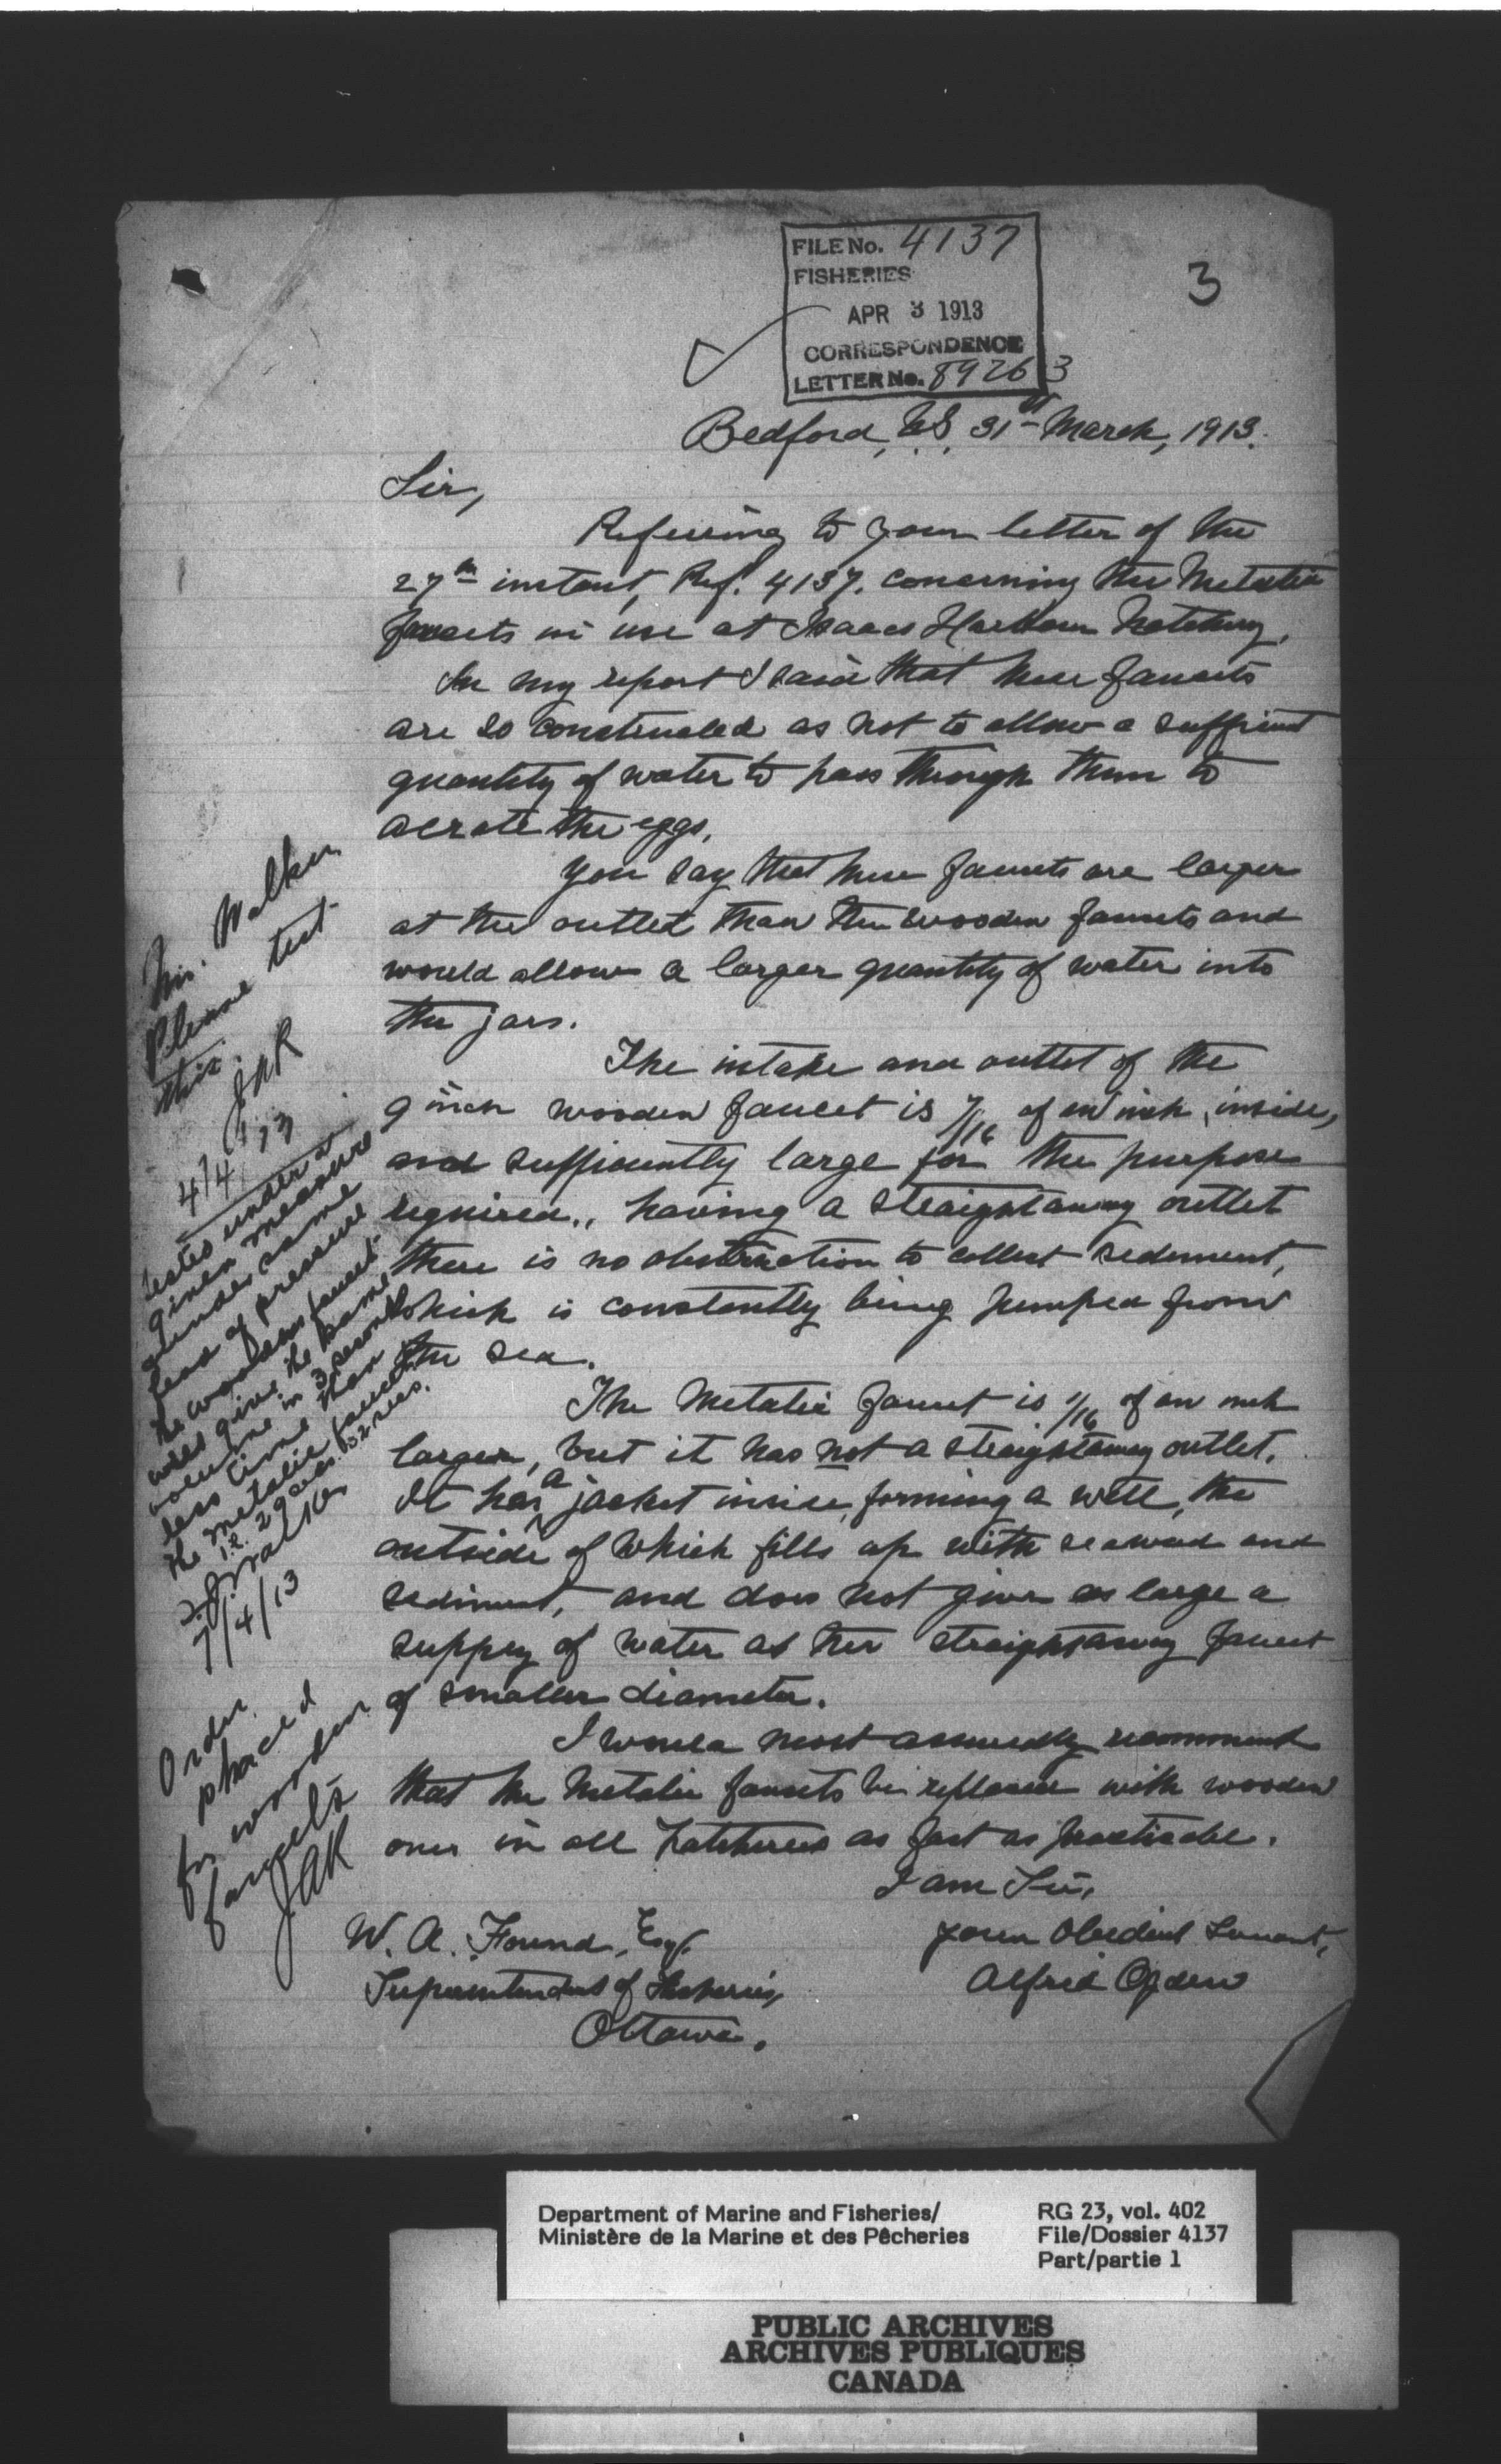 FILE No. 4137
FISHERIES
APR 3 1913
CORRESPONDENCE
LETTER No. 89263
3
Bedford, N.S. 31st March, 1913.
Sir,
Referring to your letter of the
27th instant, Ref. 4137. concerning the Metalic
faucets in use at Isaacs Harbour Hatchery,
In my report I said that these faucets
are so constructed as not to allow a suffient
quantity of water to pass through them to
aerate the eggs,
You say that these faucets are larger
at the outlet than the wooden faucets and
would allow a larger quantity of water into
the jars.
The intake and outlet of the
9 inch wooden faucet is 7/16 of an inch, inside,
and sufficiently large for the purpose
required., having a straightaway outlet
there is no obstruction to collect sediment,
which is constantly being pumped from
the sea.
The Metalic faucet is 1/16 of an inch
larger, but it has not a straightaway outlet.
It has a jacket inside, forming a well, the
outside of which fills up with seaweed and
sediment, and does not give as large a
supply of water as the straightaway faucet
of smaller diameter.
I would most assuredly recommend
that the Metalic faucets be replaced with wooden
ones in all hatcheries as fast as practicable.
I am Sir,
Your Obedient Servant,
Alfred Ogden
W. A. Found, Esq.
Superintendent of Fisheries,
Ottawa.
Mr. Walker
Please test
this.
JAR
4/4/13
Tested under a
given measure
under same
head of pressure
the wooden faucet
will give the same
volume in 3 seconds
less time than
the metalic faucet
i.e. 29 secs. 32 secs.
Walker
7/4/13
Order
placed
for wooden
faucets
JAR
Department of Marine and Fisheries/
Ministère de la Marine et des Pêcheries
RG 23, vol. 402
File/Dossier 4137
Part/partie 1
PUBLIC ARCHIVES
ARCHIVES PUBLIQUES
CANADA